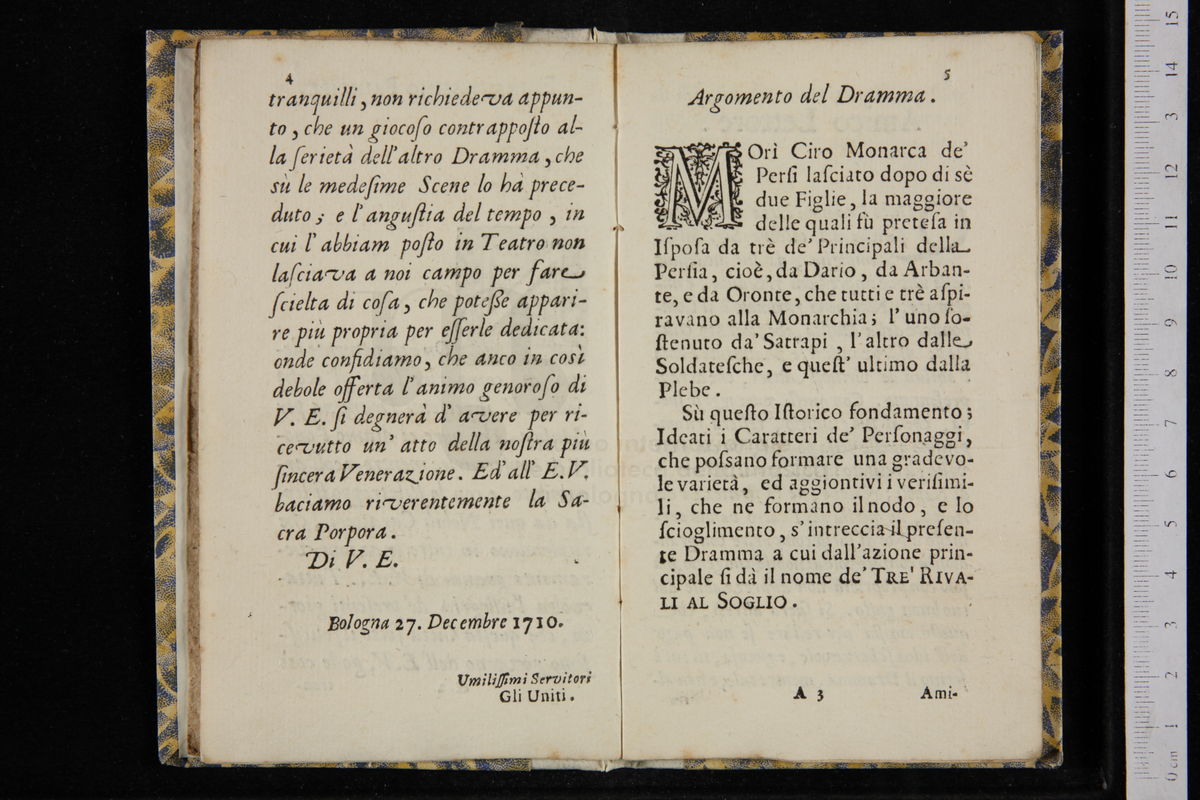 4
tranquilli, non richiedeva appun-
to, che un giocoſo contrappoſto al-
la ſerietà dell'altro Dramma, che
sù le medeſime Scene lo hà prece-
duto; e l'anguſtia del tempo, in
cui l'abbiam poſto in Teatro non
laſciava a noi campo per fare
ſcielta di coſa, che poteſſe appari-
re più propria per eſſerle dedicata:
onde confidiamo, che anco in così
debole offerta l'animo genoroſo di
V. E. ſi degnerà d'avere per ri-
cevutto un'atto della noſtra più
ſincera Venerazione. Ed'all'E. V.
baciamo riverentemente la Sa-
cra Porpora.
Di V. E.
Bologna 27. Decembre 1710.
Umiliſſimi Servitori
Gli Uniti.
5
Argomento del Dramma.
MOrì Ciro Monarca de'
Perſi laſciato dopo di sè
due Figlie, la maggiore
delle quali fù preteſa in
Iſpoſa da trè de' Principali della
Perſia, cioè, da Dario, da Arban-
te, e da Oronte, che tutti e trè aſpi-
ravano alla Monarchia; l'uno ſo-
ſtenuto da' Satrapi, l'altro dalle
Soldateſche, e queſt' ultimo dalla
Plebe.
Sù queſto Iſtorico fondamento;
Ideati i Caratteri de' Perſonaggi,
che poſsano formare una gradevo-
le varietà, ed aggiontivi i veriſimi-
li, che ne formano il nodo, e lo
ſcioglimento, s'intreccia il preſen-
te Dramma a cui dall'azione prin-
cipale ſi dà il nome de' TRE' RIVA-
LI AL SOGLIO.
A 3 Ami-
0 cm 1 2 3 4 5 6 7 8 9 10 11 12 3 14 15